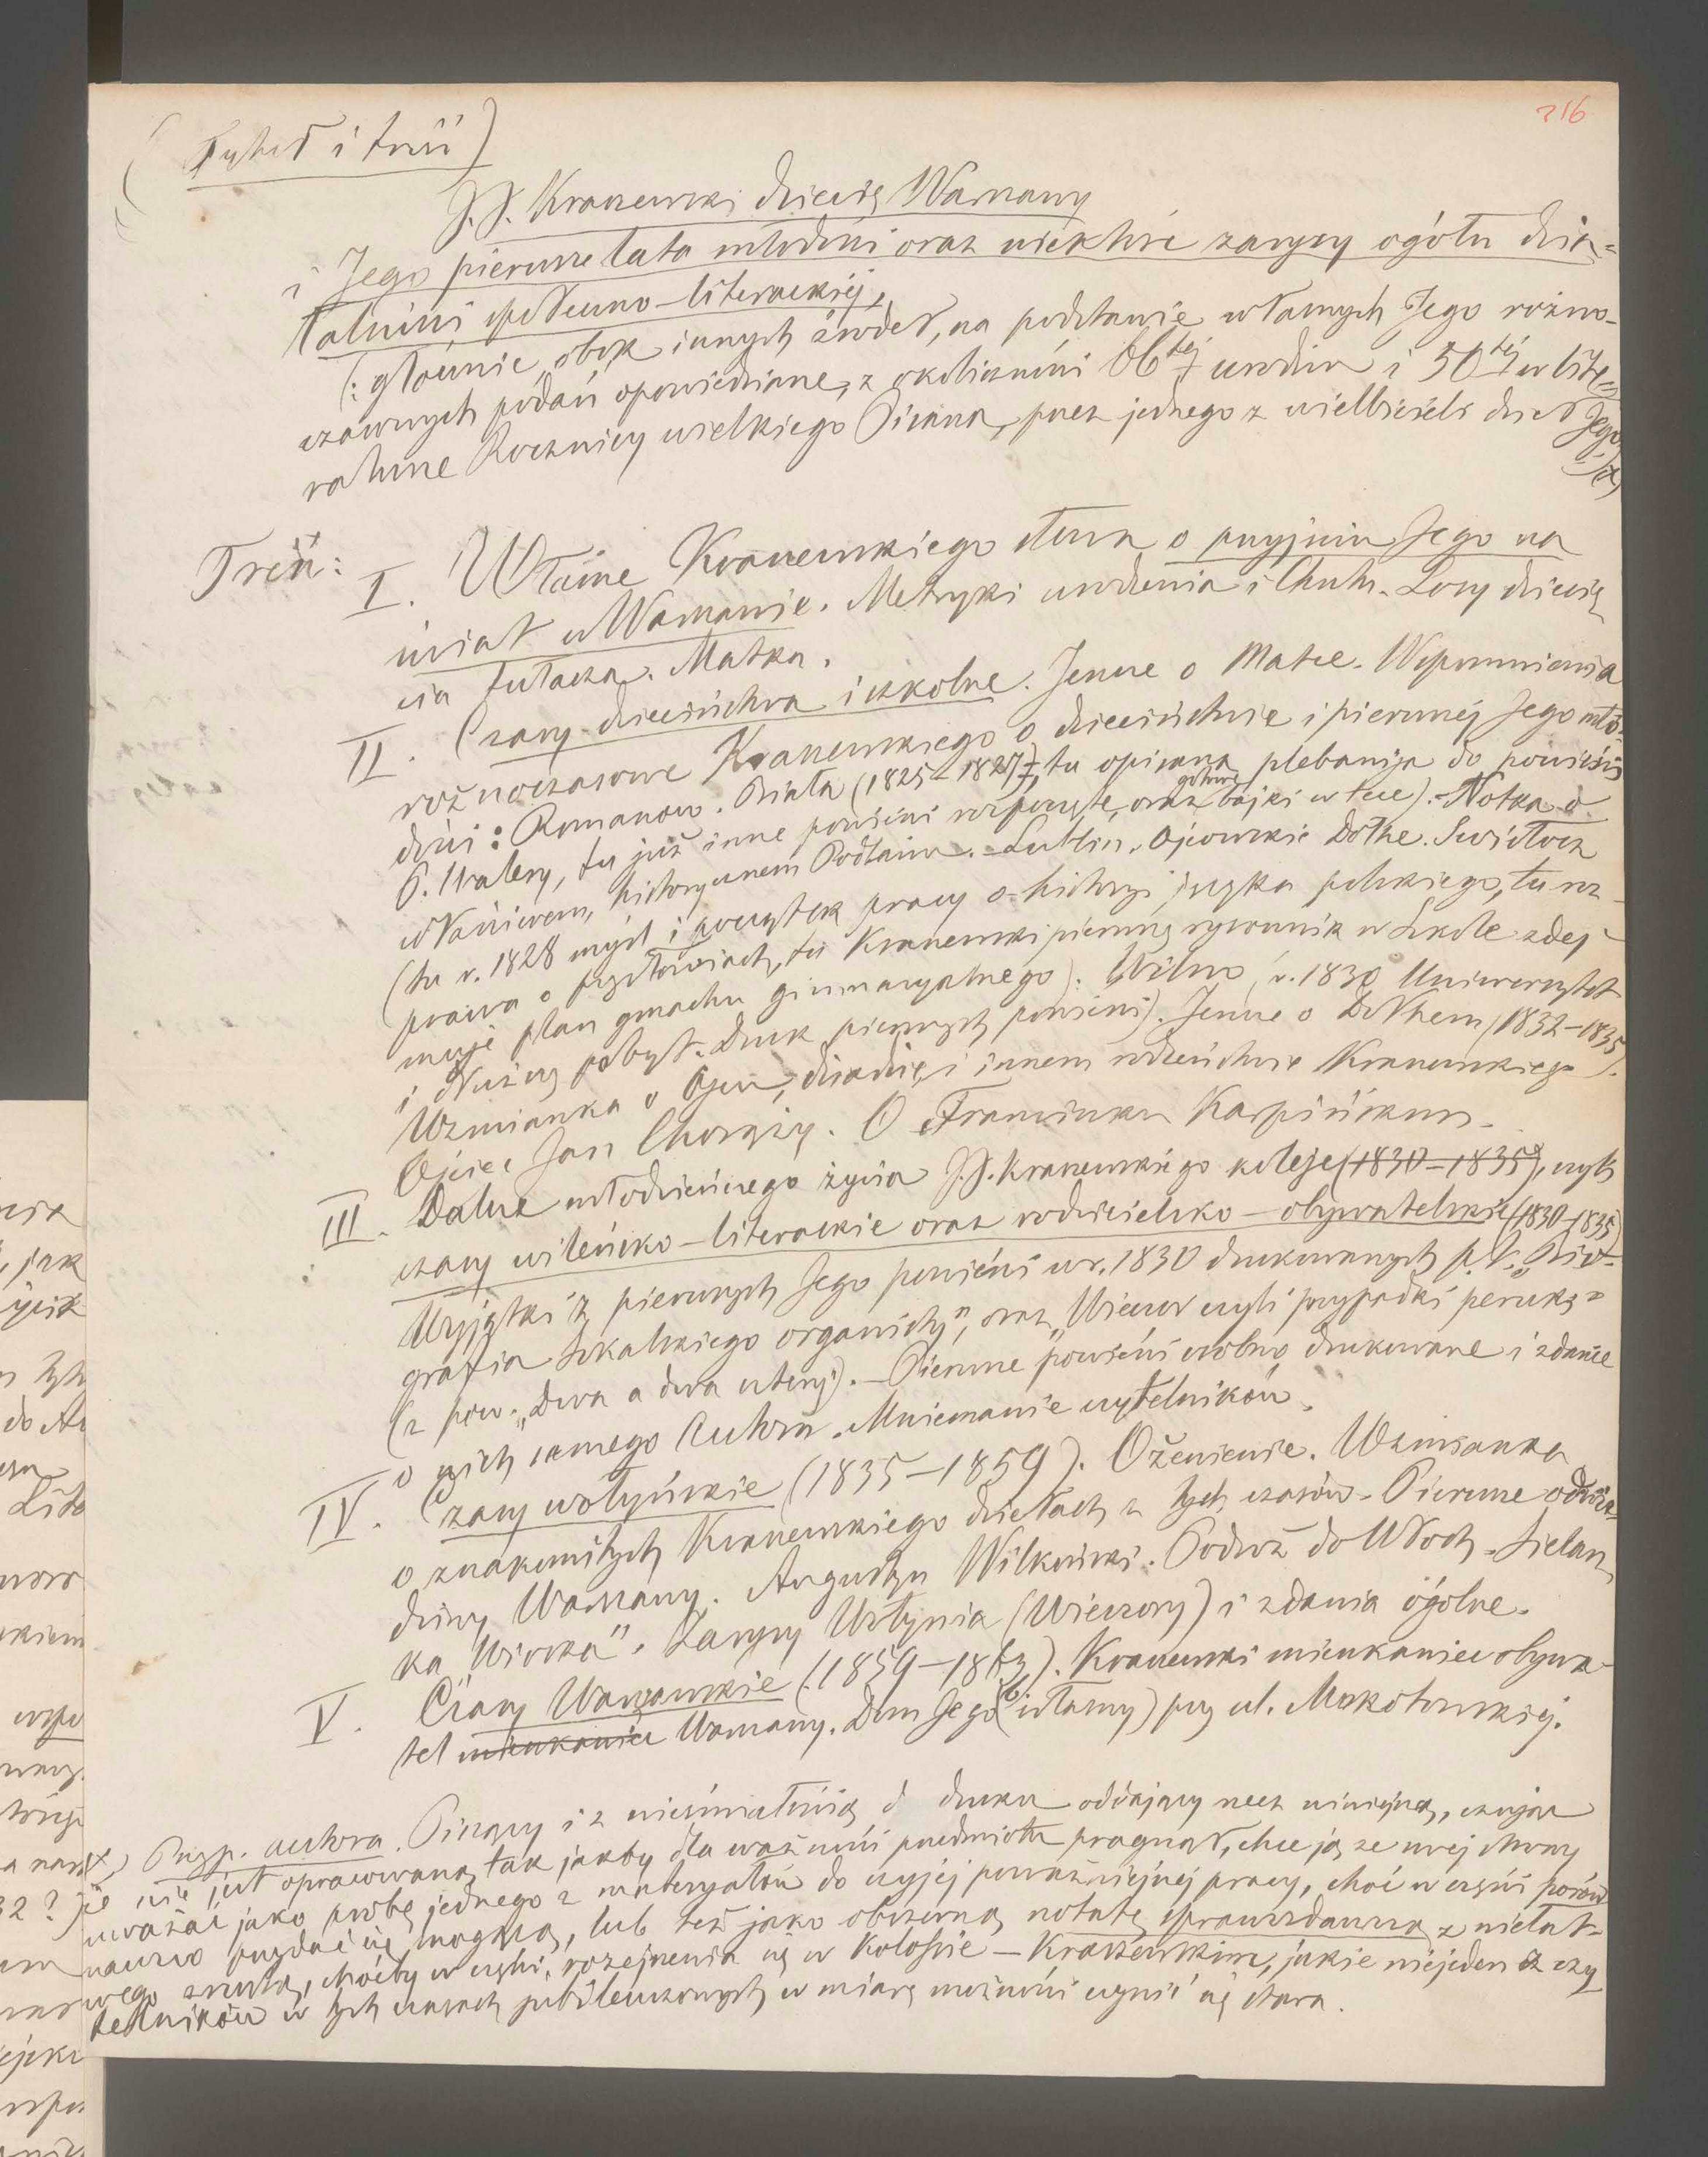 216
(Tytuł i treść)
J. J. Kraszewski dziecię Warszawy
i Jego pierwsze lata młodości oraz niektóre zarysy ogółu dzia=
łalności społeczno-literackiej,
(: głównie, obok innych źródeł, na podstawie własnych Jego różno-
czasowych podań opowiedziane, z okoliczności 66tej urodzin i 50tej w lite=
raturze Rocznicy wielkiego Pisarza, przez jednego z wielbicieli dzieł Jego :) x)
Treść:
I. Własne Kraszewskiego słowa o przyjściu Jego na
świat w Warszawie. Metryki urodzenia i Chrztu. Losy dziecię-
cia tułacza. Matka.
II. Czasy dzieciństwa i szkolne. Jeszcze o Matce. Wspomnienia
różnoczasowe Kraszewskiego o dzieciństwie i pierwszej Jego mło-
dości: Romanów. Biała (1825–1827), tu opisana plebanija do powieści
P. Walery, tu już inne powieści rozpoczęte, oraz gotowe bajki w tece). – Notka o
właściwem, historycznem Podlasiu. – Lublin. Ojcowskie Dołhe. Swisłocz
(tu r. 1828 myśl i początek pracy o historyi języka polskiego, tu roz-
prawa o przysłowiach, tu Kraszewski pierwszy rysownik w Szkole zdej-
muje plan gmachu gimnazyalnego). Wilno, r. 1830 Uniwersytet
i dłuższy pobyt. Druk pierwszych powieści). Jeszcze o Dołhem (1832–1835).
Wzmianka o Ojcu, dziadku i innem rodzeństwie Kraszewskiego
Ojciec Jan Chorąży. O Franciszku Karpińskim.
III. Dalsze młodzieńczego życia J. J. Kraszewskiego koleje (1830–1835), czyli
czasy wileńsko-literackie oraz rodzicielsko-obywatelskie (1830–1835)
Wyjątki z pierwszych Jego powieści w r. 1830 drukowanych p. t. „Bio-
grafia Sokalskiego organisty", oraz „Wieczór czyli przypadki peruki"
(z pow. „Dwa a dwa cztery). – Pierwsze powieści osobno drukowane i zdanie
o nich samego Autora. Mniemanie czytelników.
IV. Czasy wołyńskie (1835–1859). Ożenienie. Wzmianka
o znakomitych Kraszewskiego dziełach z tych czasów. – Pierwsze odwie-
dziny Warszawy. Augustyn Wilkoński. Podróż do Włoch. Sielan-
ka Wioska". Zarysy Wołynia (Wieczory) i zdania ogólne.
V. Czasy Warszawskie (1859–1863). Kraszewski mieszkaniec obywa-
tel mieszkaniec Warszawy. Dom Jego (własny) przy ul. Mokotowskiej.
x) Przyp. autora. Piszący i z nieśmiałością do druku oddający rzecz niniejszą, czując
że nie jest opracowaną tak jakby dla ważności przedmiotu pragnął, chce ją ze swej strony
uważać jako próbę jednego z materyałów do czyjej poważniejszej pracy, choć w części porów
nawczo przydać się mogącą, lub też jako obszerną notatę sprawozdawczą z niełat-
wego zresztą, choćby w części, rozejrzenia się w Kolosie – Kraszewskim, jakie niejeden z czy
telników w tych czasach jubileuszowych w miarę możności czynić się stara.